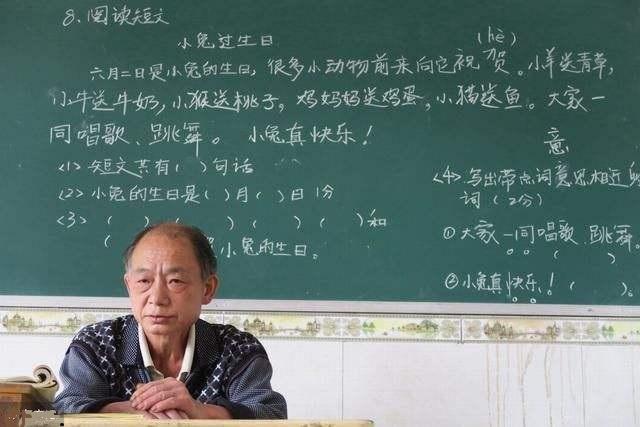 8、阅读短文
小兔过生日
(hè)
六月二日是小兔的生日,很多小动物前来向它祝贺。小羊送青草,
小牛送牛奶,小猴送桃子,鸡妈妈送鸡蛋,小猫送鱼。大家一
同唱歌、跳舞。小兔真快乐!
<1> 短文共有( )句话
<2> 小兔的生日是( )月( )日 1分
<3> ( )( )( )( )和
( 小兔的生日。
意
<4> 写出带点词意思相近的
词(2分)
① 大家一同唱歌、跳舞。
( )
② 小兔真快乐!( )。